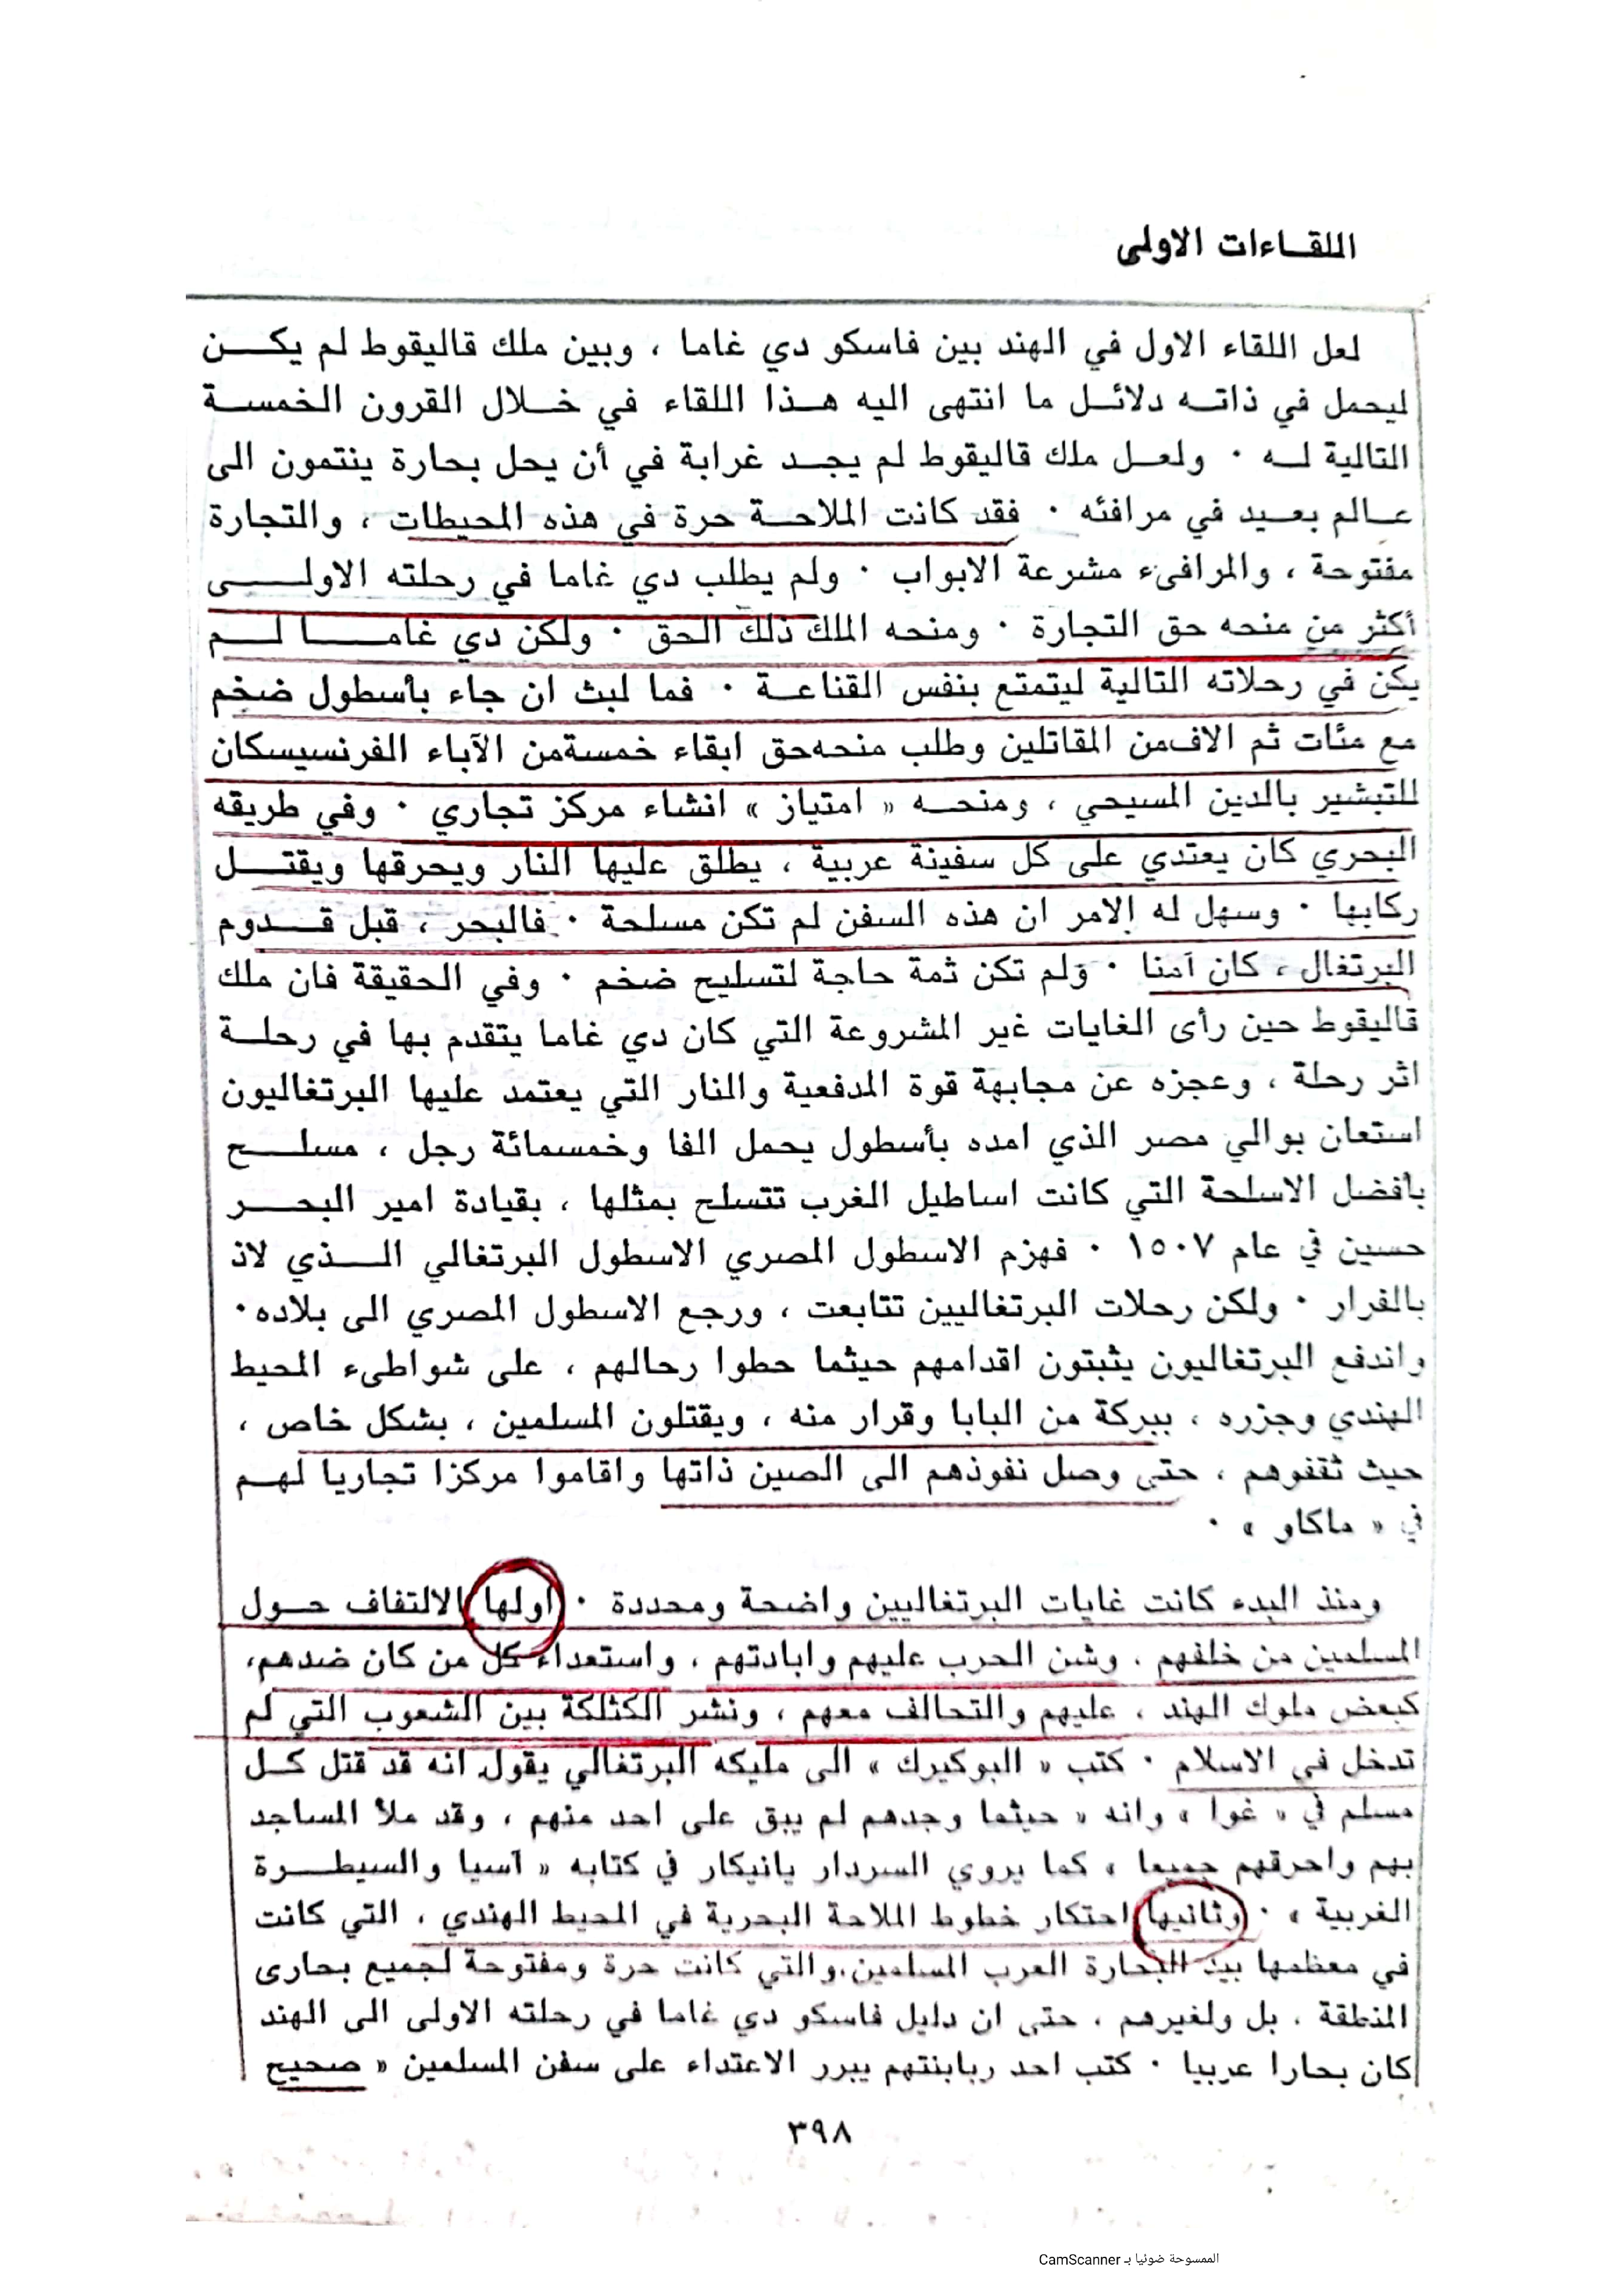 اللقـاءات الاولى
لعل اللقاء الاول في الهند بين فاسكو دي غاما ، وبين ملك قاليقوط لم يكـــن
ليحمل في ذاتـه دلائـل ما انتهى اليه هـذا اللقاء في خـلال القرون الخمسـة
التالية لـه ٠ ولعـل ملك قاليقوط لم يجـد غرابة في أن يحل بحارة ينتمون الى
عـالم بعـيد في مرافئه ٠ فقد كانت الملاحـة حرة في هذه المحيطات ، والتجارة
مفتوحة ، والمرافىء مشرعة الابواب ٠ ولم يطلب دي غاما في رحلته الاولـــى
أكثر من منحه حق التجارة ٠ ومنحه الملك ذلك الحق ٠ ولكن دي غامـــا لـــم
يكن في رحلاته التالية ليتمتع بنفس القناعـة ٠ فما لبث ان جاء بأسطول ضخم
مع مئات ثم الاف من المقاتلين وطلب منحه حق ابقاء خمسة من الآباء الفرنسيسكان
للتبشير بالدين المسيحي ، ومنحـه « امتياز » انشاء مركز تجاري ٠ وفي طريقه
البحري كان يعتدي على كل سفينة عربية ، يطلق عليها النار ويحرقها ويقتـــل
ركابها ٠ وسهل له الامر ان هذه السفن لم تكن مسلحة ٠ فالبحر ، قبل قـــدوم
البرتغال ، كان آمنا ٠ ولم تكن ثمة حاجة لتسليح ضخم ٠ وفي الحقيقة فان ملك
قاليقوط حين رأى الغايات غير المشروعة التي كان دي غاما يتقدم بها في رحلـة
اثر رحلة ، وعجزه عن مجابهة قوة المدفعية والنار التي يعتمد عليها البرتغاليون
استعان بوالي مصر الذي امده بأسطول يحمل الفا وخمسمائة رجل ، مسلـــح
بافضل الاسلحة التي كانت اساطيل الغرب تتسلح بمثلها ، بقيادة امير البحـــر
حسين في عام ١٥٠٧ ٠ فهزم الاسطول المصري الاسطول البرتغالي الـــذي لاذ
بالفرار ٠ ولكن رحلات البرتغاليين تتابعت ، ورجع الاسطول المصري الى بلاده٠
واندفع البرتغاليون يثبتون اقدامهم حيثما حطوا رحالهم ، على شواطىء المحيط
الهندي وجزره ، ببركة من البابا وقرار منه ، ويقتلون المسلمين ، بشكل خاص ،
حيث ثقفوهم ، حتى وصل نفوذهم الى الصين ذاتها واقاموا مركزا تجاريا لهـم
في « ماكاو » ٠
ومنذ البدء كانت غايات البرتغاليين واضحة ومحددة ٠ اولها الالتفاف حـول
المسلمين من خلفهم ، وشن الحرب عليهم وابادتهم ، واستعداء كل من كان ضدهم،
كبعض ملوك الهند ، عليهم والتحالف معهم ، ونشر الكثلكة بين الشعوب التي لم
تدخل في الاسلام ٠ كتب « البوكيرك » الى مليكه البرتغالي يقول انه قد قتل كـل
مسلم في « غوا » وانه « حيثما وجدهم لم يبق على احد منهم ، وقد ملأ المساجد
بهم واحرقهم جميعا » كما يروي السردار بانيكار في كتابه « آسيا والسيطـــرة
الغربية » ٠ وثانيها احتكار خطوط الملاحة البحرية في المحيط الهندي ، التي كانت
في معظمها بيد البحارة العرب المسلمين، والتي كانت حرة ومفتوحة لجميع بحارى
المنطقة ، بل ولغيرهم ، حتى ان دليل فاسكو دي غاما في رحلته الاولى الى الهند
كان بحارا عربيا ٠ كتب احد ربابنتهم يبرر الاعتداء على سفن المسلمين « صحيح
٣٩٨
الممسوحة ضوئيا بـ CamScanner